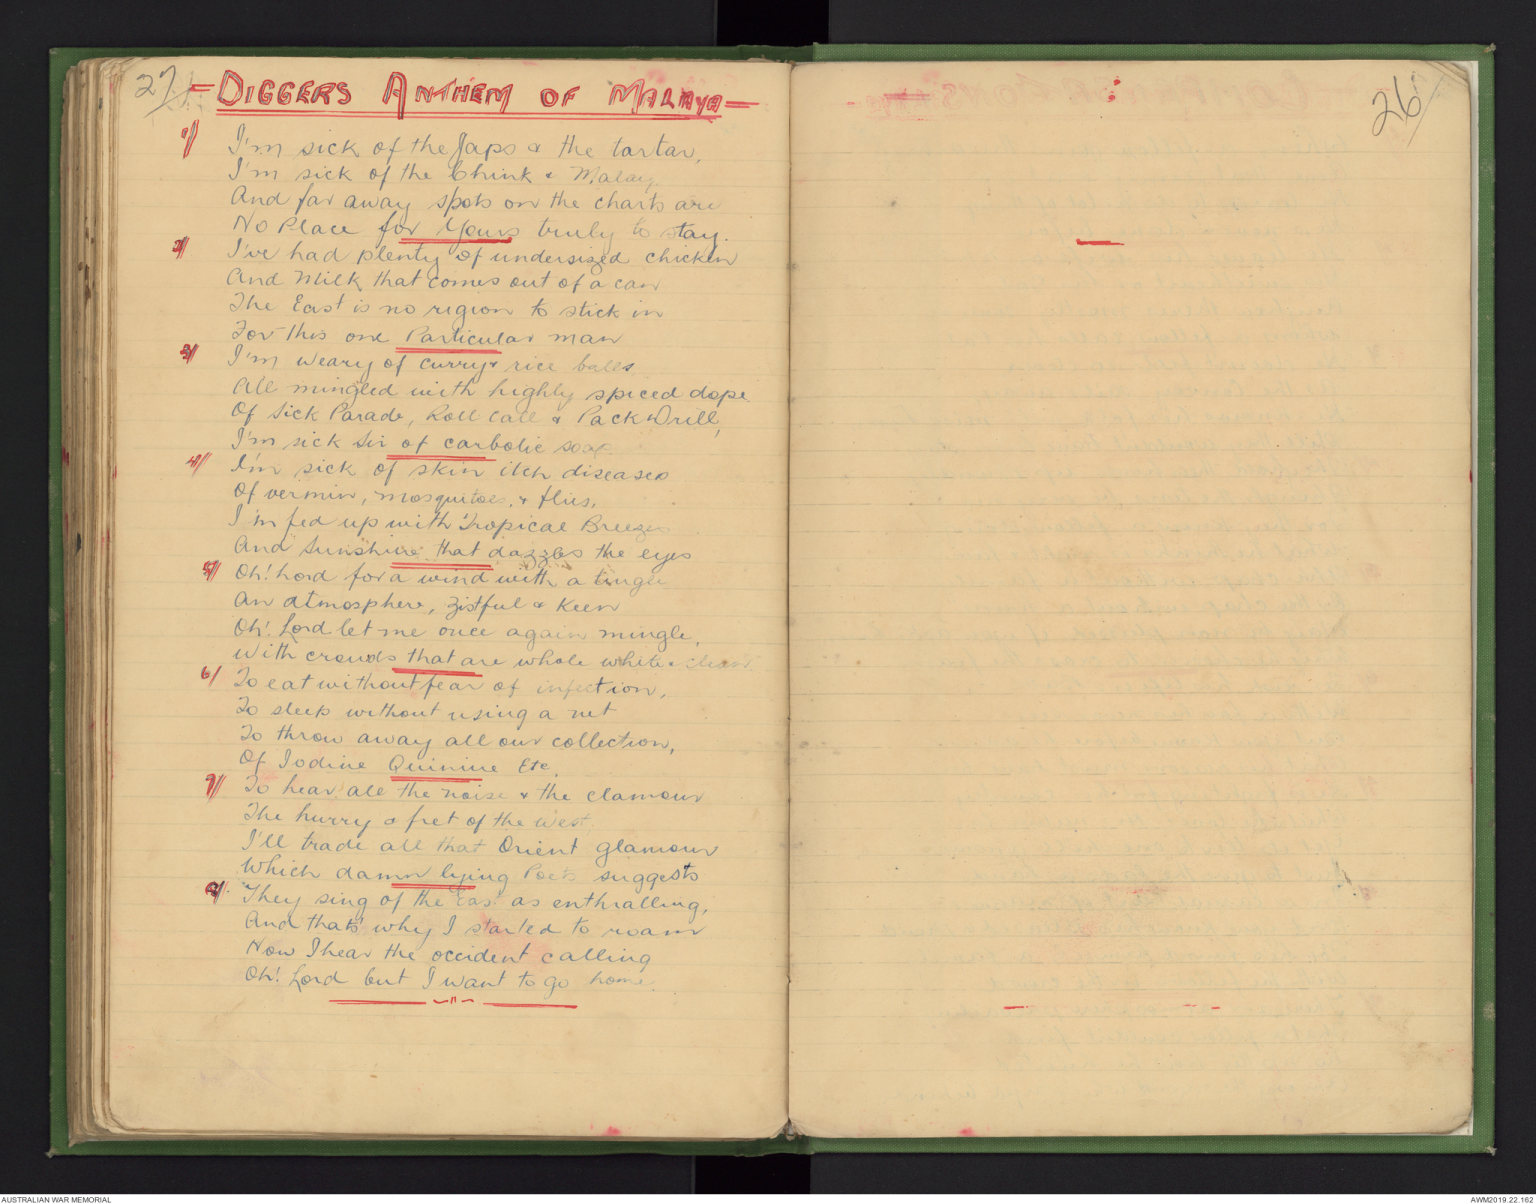 27
— DIGGERS ANTHEM OF MALAYA —
1/ I'm sick of the Japs & the tartar,
I'm sick of the Chink & Malay
And far away spots on the charts are
No Place for Yours truly to stay.
2/ I've had plenty of undersized chicken
And Milk that comes out of a can
The East is no region to stick in
For this one Particular man
3/ I'm weary of curry & rice balls
All mingled with highly spiced dope
Of Sick Parade, Roll Call & Pack Drill,
I'm sick Sir of carbolic soap
4/ I'm sick of skin itch diseases
Of vermin, mosquitoes, & flies,
I'm fed up with Tropical Breezes
And Sunshine that dazzles the eyes
5/ Oh! Lord for a wind with a tingle
An atmosphere, zistful & keen
Oh! Lord let me once again mingle,
With crowds that are whole white & clean
6/ To eat without fear of infection,
To sleep without using a net
To throw away all our collection,
Of Iodine Quinine Etc.
7/ To hear all the noise & the clamour
The hurry & fret of the West
I'll trade all that Orient glamour
Which damn lying Poets suggests
8/ They sing of the East as enthralling,
And thats why I started to roam
Now I hear the occident calling
Oh! Lord but I want to go home.
26
AUSTRALIAN WAR MEMORIAL
AWM2019.22.162